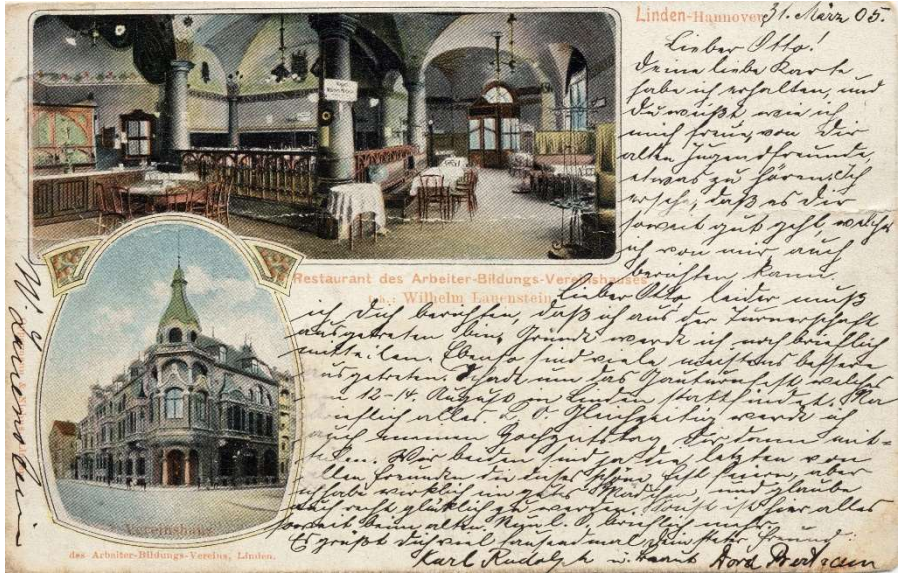 Linden-Hannover, 31. März 05.
Lieber Otto!
Deine liebe Karte
habe ich erhalten, und
Du weißt wie ich
mich freue, von Dir
alten Jugendfreunde,
etwas zu hören. Ich
ersehe, daß es Dir
soweit gut geht, welches
ich von mir auch
berichten kann.
Restaurant des Arbeiter-Bildungs-Vereinshauses
Inh.: Wilhelm Lauenstein
Lieber Otto leider muß
ich Dich berichten, daß ich aus der Turnerschaft
ausgetreten bin, Gründe werde ich noch brieflich
mitteilen. Ebenso sind viele meistens bessere
ausgetreten. Schade um das Gauturnfest welches
12-14. August in Linden stattfindet.
alles Gleichzeitig werde ich
auch meinen Hochzeitstag Dir dann mit-
Wir beiden sind ja die letzten von
allen Freunden die dieses schöne Fest feiern, aber
ich habe wirklich ein gutes Mädchen, und glaube
auch recht glücklich zu werden. Sonst ist hier alles
soweit beim alten brieflich mehr.
Es grüßt Dich viel tausendmal Dein Freund
Karl Rudolph u. Braut
Vereinshaus
des Arbeiter-Bildungs-Vereins, Linden.